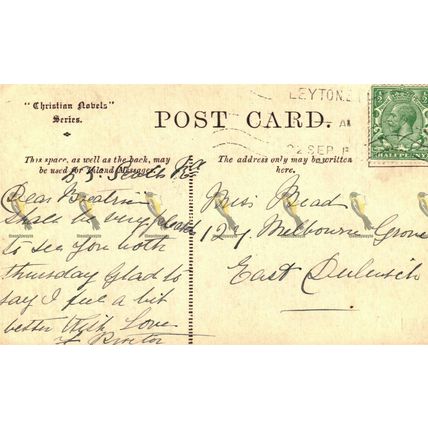 "Christian Novels"
Series.
POST CARD.
LEYTON.
AM
22 SEP
HALFPENNY
This space, as well as the back, may
be used for Inland Messages.
The address only may be written
here.
Dear
Shall be very pleased
to see you both
Thursday glad to
say I feel a bit
better With Love
Miss Mead
127, Melbourne Grove
East Dulwich